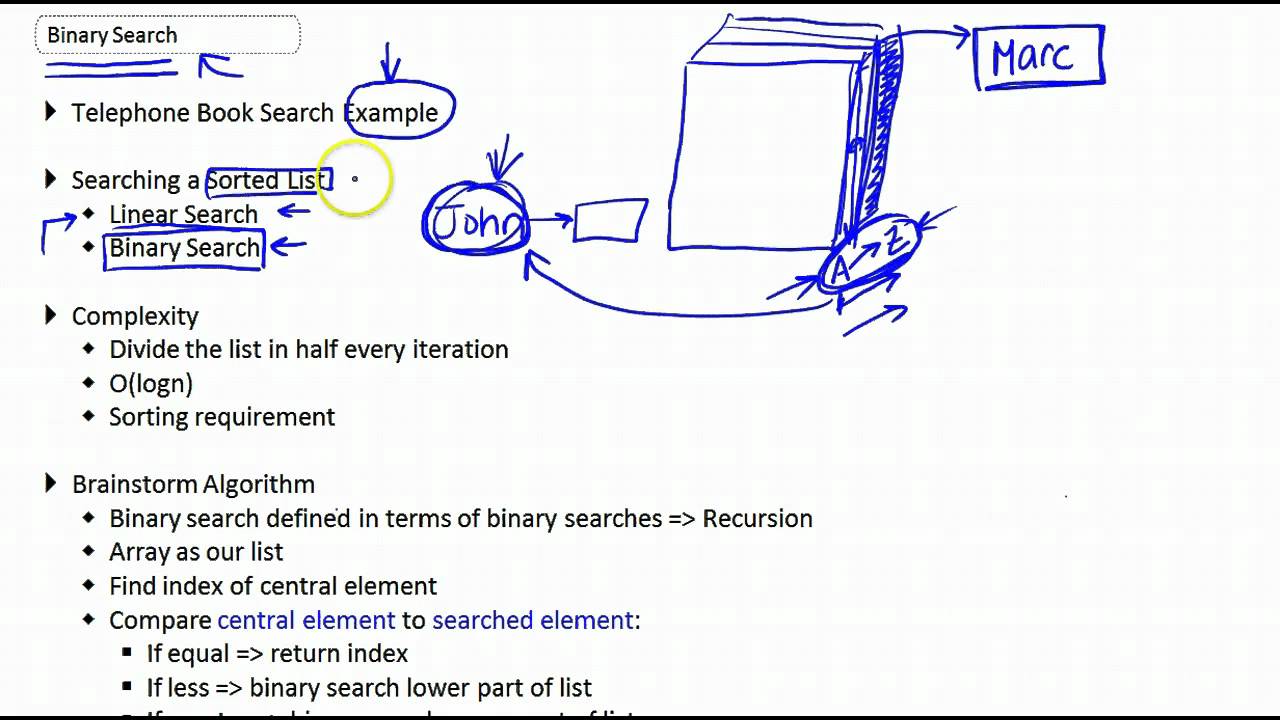 Binary Search
Marc
Telephone Book Search Example
Searching a Sorted List
Linear Search
John
Binary Search
A
Z
Complexity
Divide the list in half every iteration
O(logn)
Sorting requirement
Brainstorm Algorithm
Binary search defined in terms of binary searches => Recursion
Array as our list
Find index of central element
Compare central element to searched element:
If equal => return index
If less => binary search lower part of list